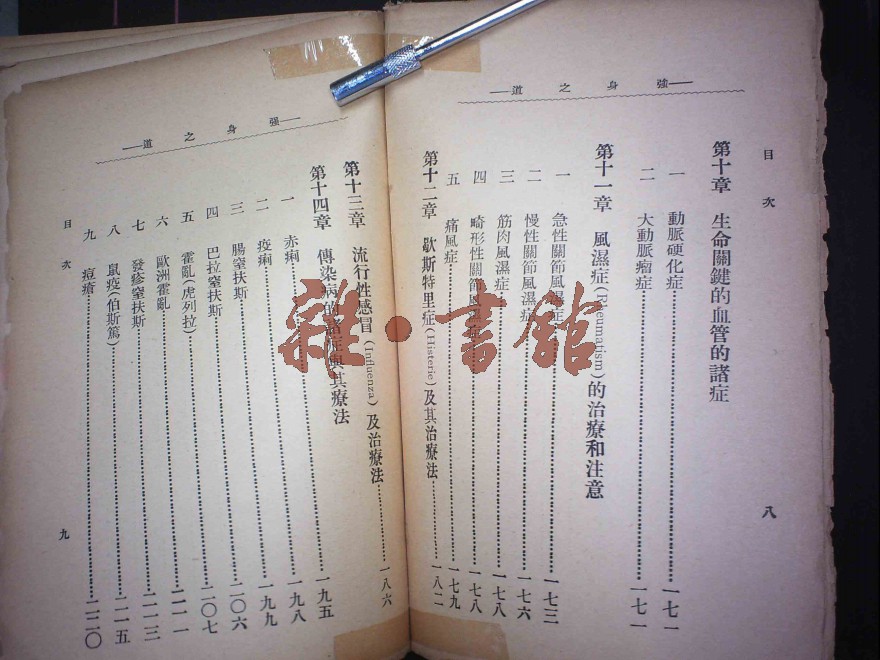 強身之道
目次
第十章 生命關鍵的血管的諸症
一 動脈硬化症……一七一
二 大動脈瘤症……一七一
第十一章 風濕症(Rheumatism)的治療和注意
一 急性關節風濕症……一七三
二 慢性關節風濕症……一七六
三 筋肉風濕症……一七八
四 畸形性關節風濕症……一七八
五 痛風症……一七九
第十二章 歇斯特里症(Histerie)及其治療法……一八二
八
強身之道
第十三章 流行性感冒(Influenza)及治療法……一八六
第十四章 傳染病的諸症與其療法……一九五
一 赤痢……一九八
二 疫痢……一九九
三 腸窒扶斯……二〇六
四 巴拉窒扶斯……二〇七
五 霍亂(虎列拉)……二一一
六 歐洲霍亂
七 發疹窒扶斯……二一三
八 鼠疫(伯斯篤)……二一五
九 痘瘡……二二〇
目次
九
雜·書館